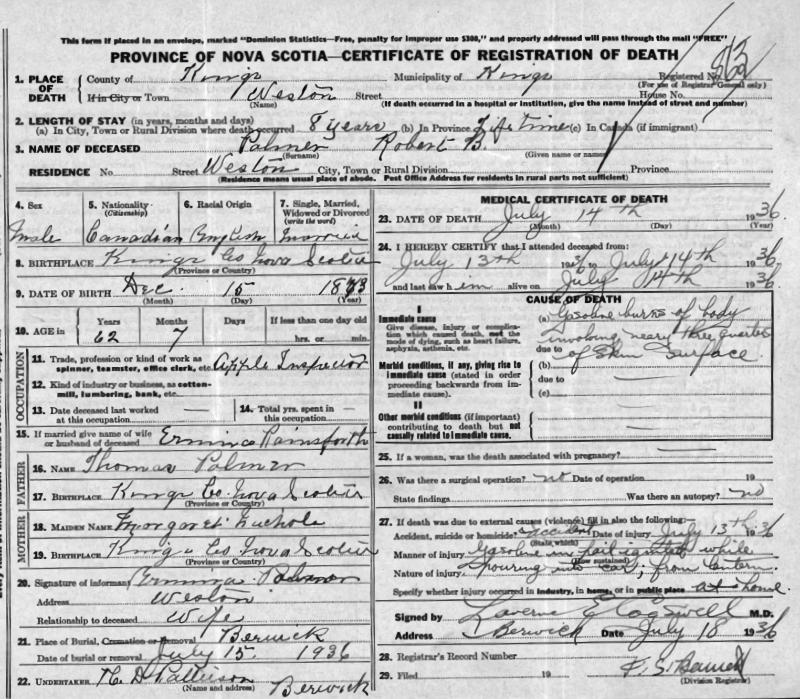 This form if placed in an envelope, marked "Dominion Statistics—Free, penalty for improper use $300," and properly addressed will pass through the mail "FREE"
PROVINCE OF NOVA SCOTIA—CERTIFICATE OF REGISTRATION OF DEATH
1. PLACE OF DEATH County of Kings Municipality of Kings Registered No.
(For use of Registrar General only)
If in City or Town Weston Street House No.
(Name) (If death occurred in a hospital or institution, give the name instead of street and number)
2. LENGTH OF STAY (in years, months and days)
(a) In City, Town or Rural Division where death occurred 8 years (b) In Province Life time (c) In Canada (if immigrant)
3. NAME OF DECEASED Palmer Robert B.
(Surname) (Given name or names)
RESIDENCE No. Street Weston City, Town or Rural Division Province
(Residence means usual place of abode. Post Office Address for residents in rural parts not sufficient)
4. Sex 5. Nationality (Citizenship) 6. Racial Origin 7. Single, Married, Widowed or Divorced (write the word)
Male Canadian English Married
8. BIRTHPLACE Kings Co Nova Scotia
(Province or Country)
9. DATE OF BIRTH Dec. 15 1873
(Month) (Day) (Year)
10. AGE in Years Months Days If less than one day old
62 7 hrs. or min.
OCCUPATION
11. Trade, profession or kind of work as spinner, teamster, office clerk, etc. Apple Inspector
12. Kind of industry or business, as cotton-mill, lumbering, bank, etc.
13. Date deceased last worked at this occupation — 14. Total yrs. spent in this occupation —
15. If married give name of wife or husband of deceased Ermina Rainsforth
FATHER
16. NAME Thomas Palmer
17. BIRTHPLACE Kings Co. Nova Scotia
(Province or Country)
MOTHER
18. MAIDEN NAME Margaret Nichols
19. BIRTHPLACE Kings Co Nova Scotia
(Province or Country)
20. Signature of informant Ermina Palmer
Address Weston
Relationship to deceased Wife
21. Place of Burial, Cremation or removal Berwick
Date of burial or removal July 15 1936
22. UNDERTAKER H. D Patterson Berwick
(Name and address)
MEDICAL CERTIFICATE OF DEATH
23. DATE OF DEATH July 14th 1936
(Month) (Day) (Year)
24. I HEREBY CERTIFY that I attended deceased from:
July 13th 1936 to July 14th 1936
and last saw him alive on July 14th 1936
CAUSE OF DEATH
I
Immediate cause
Give disease, injury or complication which caused death, not the mode of dying, such as heart failure, asphyxia, asthenia, etc.
(a) Gasoline burns of body
involving neary three quarters
due to of skin surface.
Morbid conditions, if any, giving rise to immediate cause (stated in order proceeding backwards from immediate cause).
(b) —
due to —
(c) —
II
Other morbid conditions (if important) contributing to death but not causally related to immediate cause.
25. If a woman, was the death associated with pregnancy? —
26. Was there a surgical operation? no Date of operation 19
State findings Was there an autopsy? no
27. If death was due to external causes (violence) fill in also the following:
Accident, suicide or homicide? accident Date of injury July 13th 1936
(State which)
Manner of injury Gasoline in pail ignited while
(How sustained)
Nature of injury pouring into car; from lantern.
Specify whether injury occurred in industry, in home, or in public place at home
Signed by Laverne E Cogswell M.D.
Address Berwick Date July 18 1936
28. Registrar's Record Number
29. Filed 19
(Division Registrar)